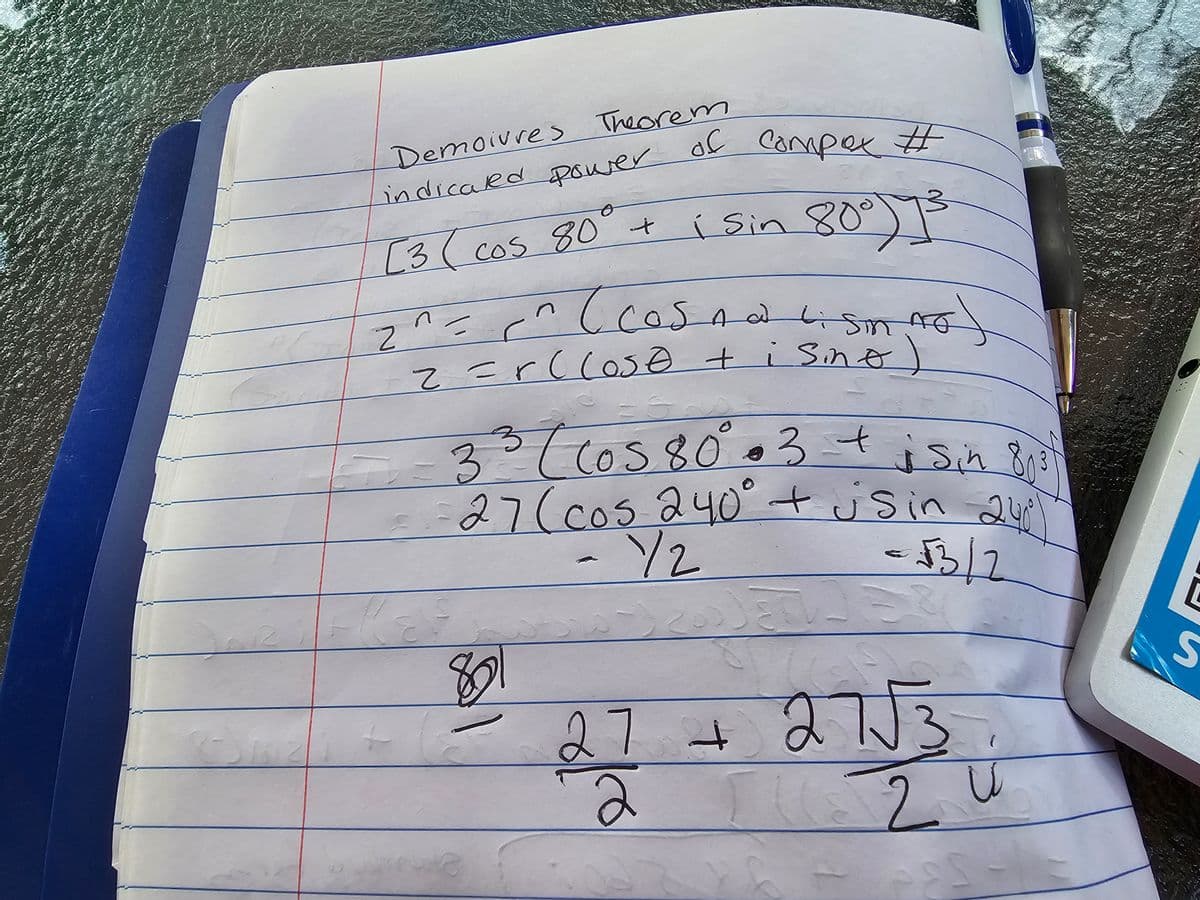 Demoivres Theorem
indicated power of Compex #
[3(cos 80° + i sin 80°)]³
zⁿ = rⁿ(cos nθ + i sin nθ)
z = r(cosθ + i sinθ)
3³(cos 80°•3 + i sin 80³)
27(cos 240° + i sin 240°)
- 1/2 -√3/2
- 27/2 + 27√3/2 i
S